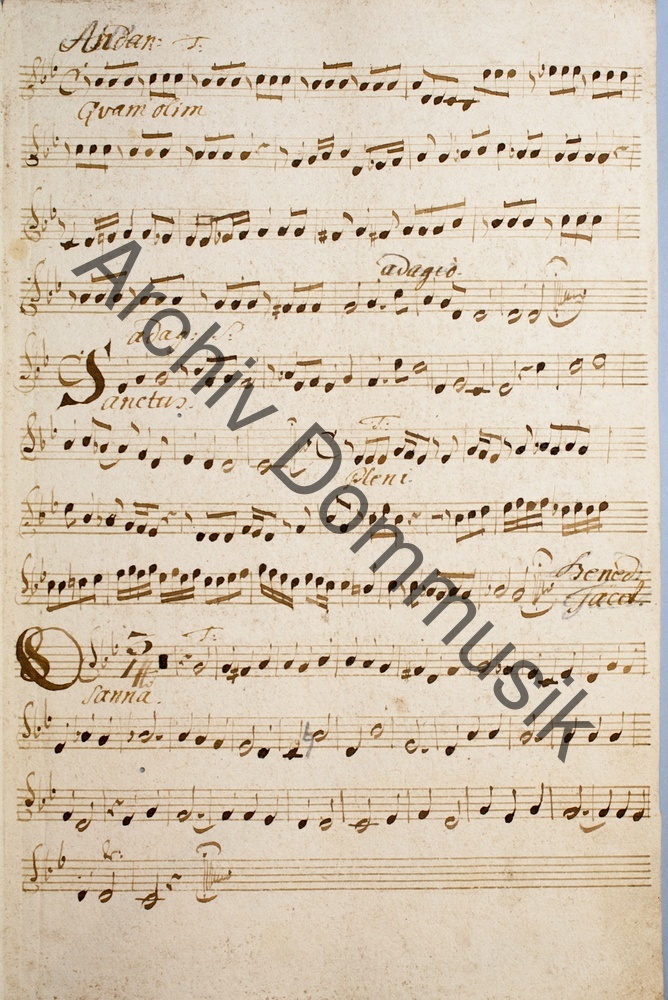 Andan: T:
Quam olim
adagio.
adag: S:
Sanctus.
T:
Pleni
Bened:
Tacet.
T:
Osanna.
tr:
Archiv Dommusik